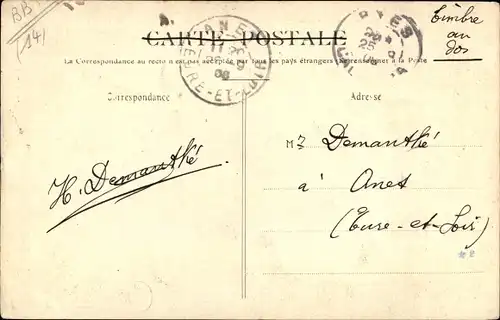 BB
(14)
CARTE POSTALE
Timbre
au
dos
La Correspondance au recto n'est pas acceptée par tous les pays étrangers (Se renseigner à la Poste)
Correspondance
Adresse
ANET
EURE-ET-LOIR
RYES
25
H. Demanthé
Mz Demanthé
à Anet
(Eure-et-Loir)